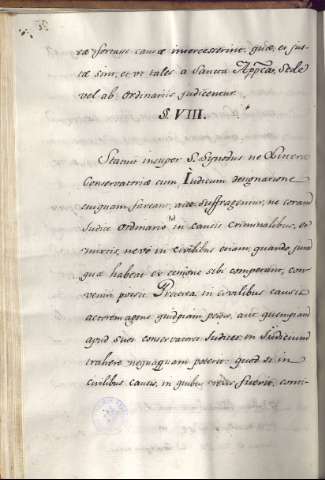 ræ fortasse causæ intercesserint, quæ, et jus-
tæ sint, et ut tales a Sancta Appca. Sede
vel ab Ordinariis judicentur.
§. VIII.
Statuit insuper S. Synodus ne Literæ
Conservatoriæ cum Judicum designatione
cuiquam faveant, aut suffragentur, ne coram
Judice Ordinario in causis criminalibus, et
mixtis, nevè in civilibus etiam, quando jura
quæ habeat ex cessione sibi competant, con-
veniri possit. Præterea, in civilibus causis
actorem agens quidpiam petens, aut quempiam
apud suos conservatores Judices in Judicium
trahere nequaquam poterit: quod si in
civilibus causis, in quibus reus fuerit, cont-